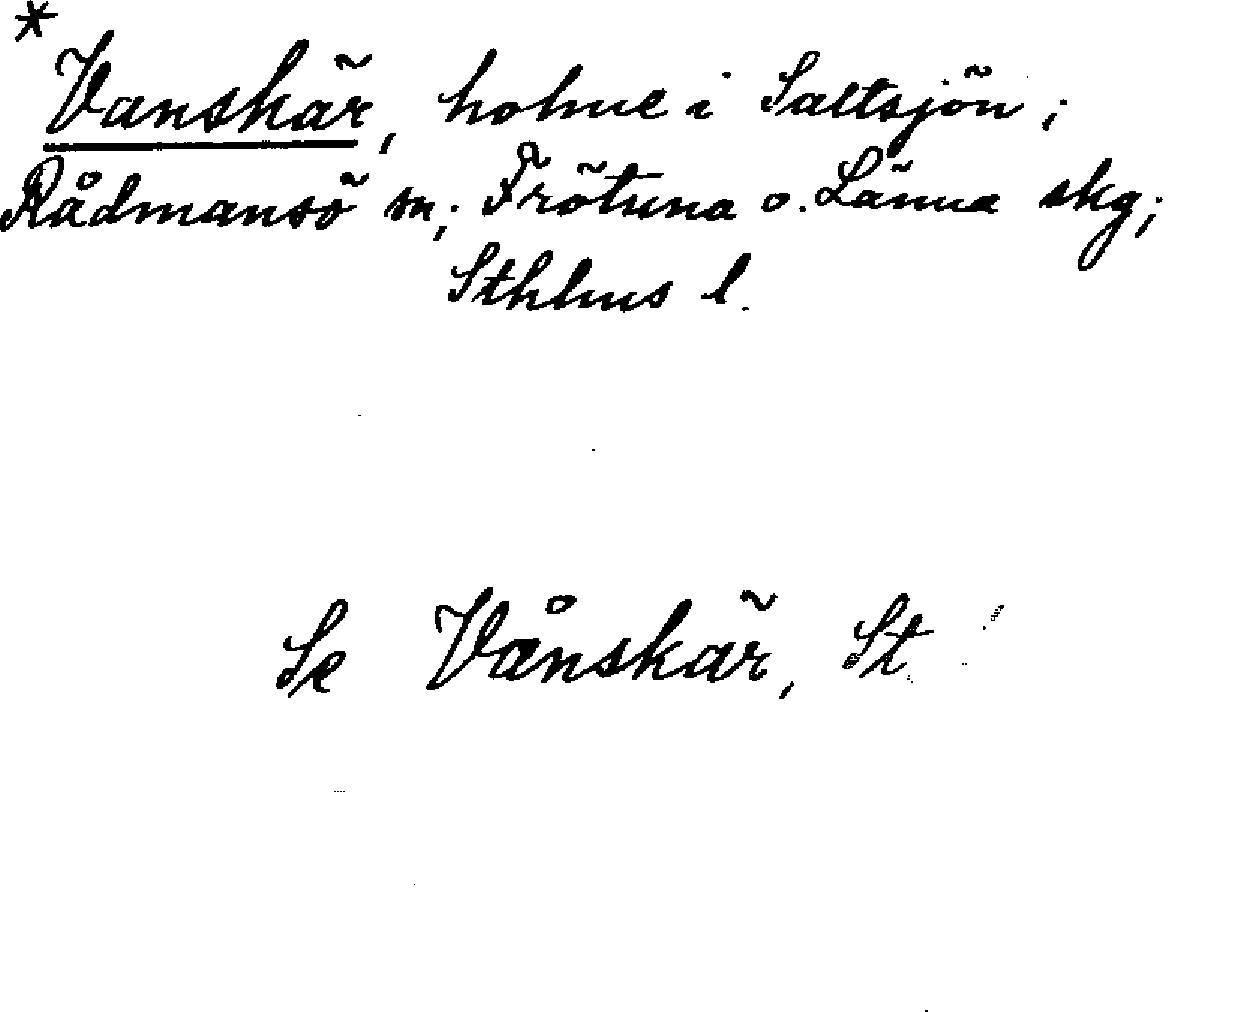 * Vanskär, holme i Saltsjön;
Rådmansö sn; Frötuna o. Länna skg;
Sthlms l.
Se Vånskär, St